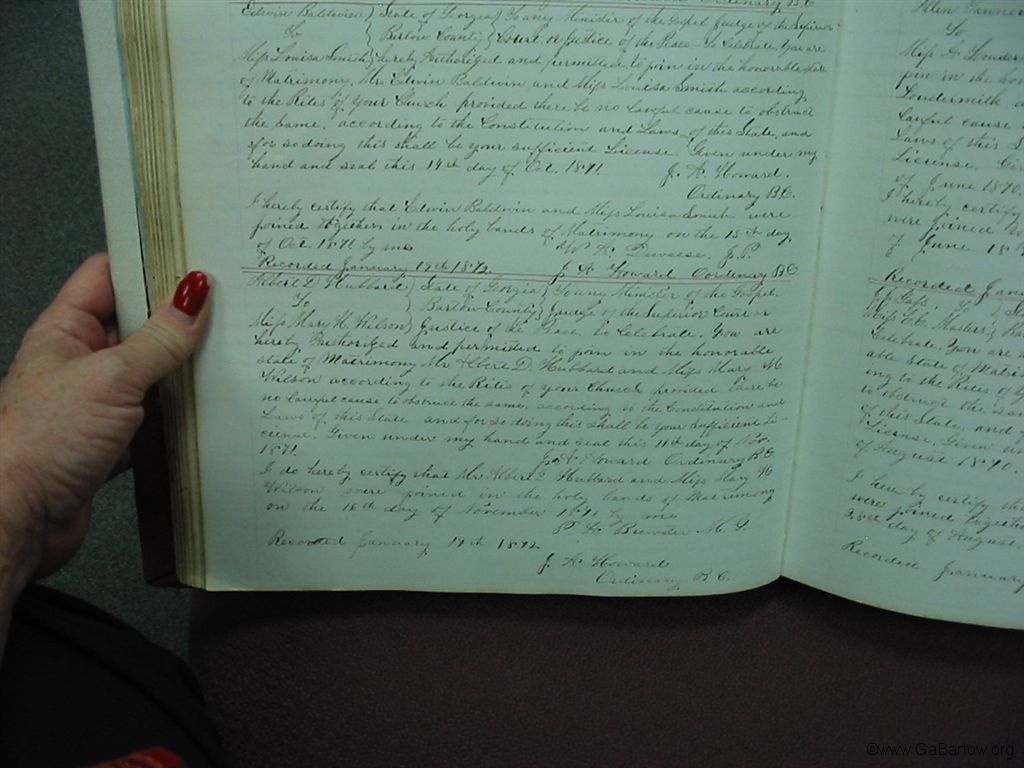 Ordinary B.C.
Edwin Baldwin } State of Georgia } To any Minister of the Gospel Judge of the Superior
To } Bartow County } Court or Justice of the Peace to Celebrate, You are
Miss Louisa Smith } hereby Authorized and permitted to join in the honorable state
of Matrimony, Mr Edwin Baldwin and Miss Louisa Smith according
to the Rites of your Church provided there be no lawful cause to obstruct
the same, according to the Constitution and Laws of this State, and
for so doing this shall be your sufficient License. Given under my
hand and seal this 14th day of Oct. 1871.
J. A. Howard.
Ordinary B.C.
I hereby certify that Edwin Baldwin and Miss Louisa Smith were
joined together in the holy bands of Matrimony on the 15th day
of Oct. 1871 by me
J.P.
Recorded January 19th 1872. J A Howard Oordinary B C
Albert D Hubbard } State of Georgia } To any Minister of the Gospel.
To } Bartow County } Judge of the Superior Court or
Miss Mary H. Wilson } Justice of the Peace, to Celebrate. You are
hereby Authorized and permitted to join in the honorable
state of Matrimony Mr Albert D. Hubbard and Miss Mary H
Wilson according to the Rites of your Church provided there be
no lawful cause to obstruct the same, according to the Constitution and
Laws of this State and for so doing this shall be your Sufficient Li-
cense. Given under my hand and seal this 11th day of Nov.
1871. J. A. Howard Ordinary B.C.
I do hereby certify that Mr Albert D Hubbard and Miss Mary H
Wilson were joined in the holy bands of Matrimony
on the 16th day of November 1871 by me
Brewster M. G
Recorded January 19th 1872.
J. A. Howard
Ordinary B. C.
Allen
To
Miss
join in the
Loudermilk
Lawful cause
Laws of this
License.
of June 1870.
I hereby certify
were joined
of June 18
Recorded
To
Miss
Celebrate. You are
able State of
ing to the Rites of
to obstruct the
of this State, and
License. Given
of August 1870.
I hereby certify
were joined together
28th day of August.
Recorded January
©www.GaBartow.org